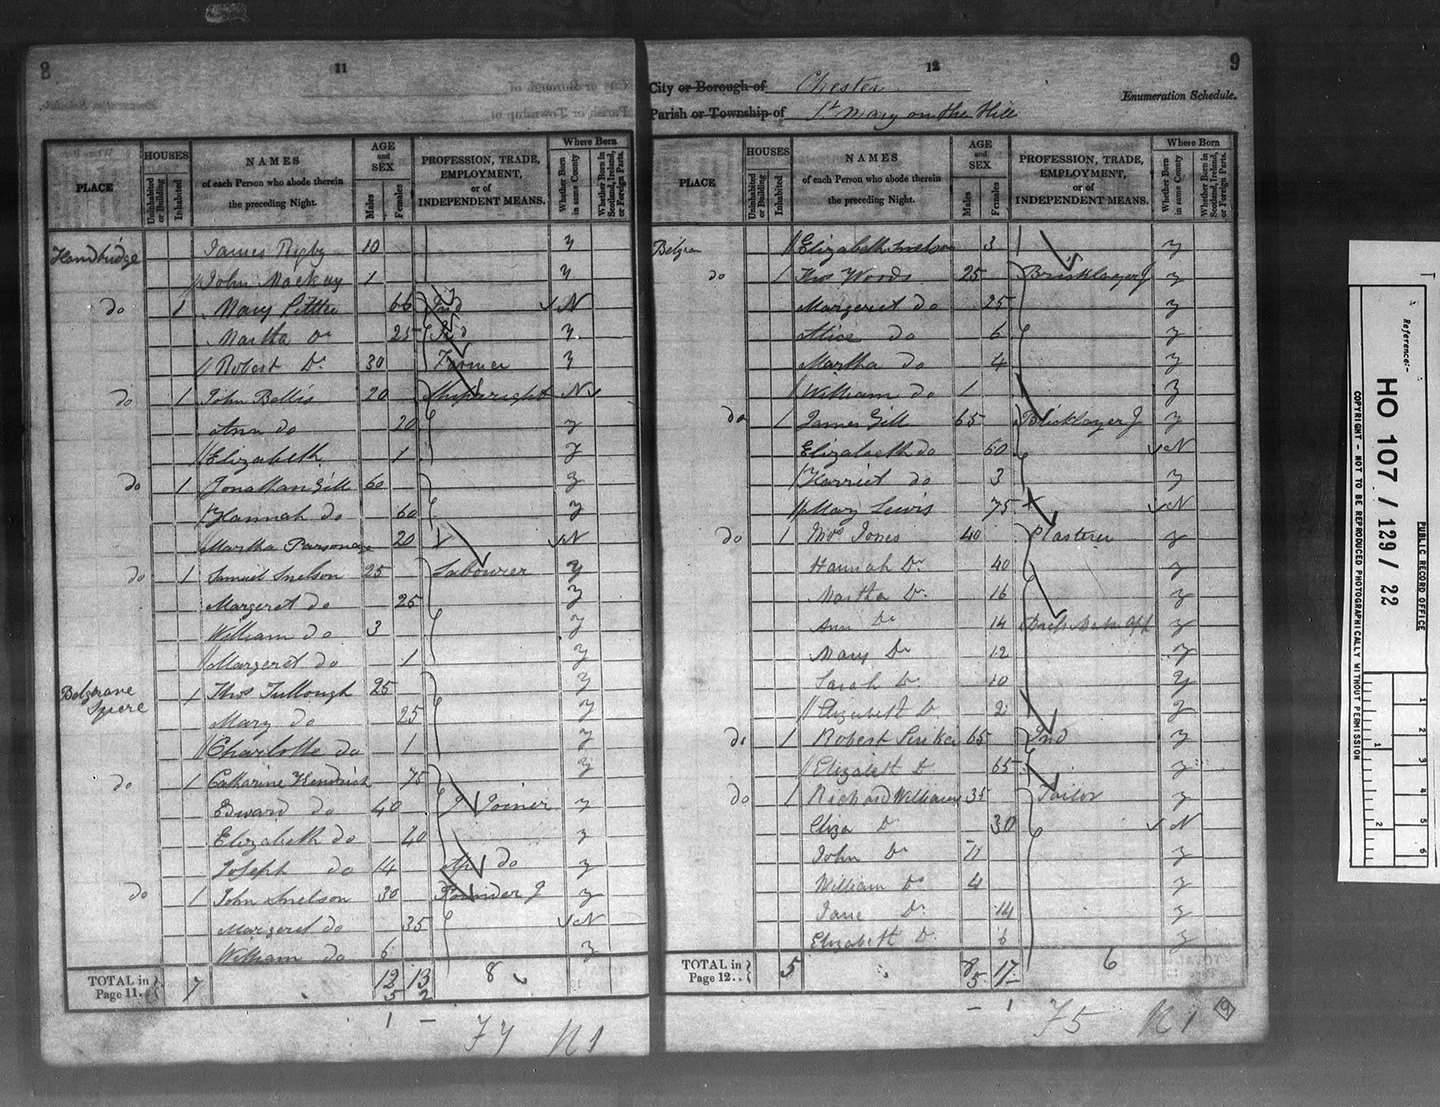 8
11
PLACE
HOUSES
Uninhabited or Building
Inhabited
NAMES
of each Person who abode therein
the preceding Night.
AGE
and
SEX
Males
Females
PROFESSION, TRADE,
EMPLOYMENT,
or of
INDEPENDENT MEANS.
Where Born
Whether Born in same County
Whether Born in Scotland, Ireland, or Foreign Parts.
Handbridge James Rigby 10 y
John Mackay 1 y
do 1 Mary 66 Ind N
Martha Do 25 Ind y
Robert Do 30 Farmer y
do 1 John Bellis 20 Shipwright N
Ann do 20 y
Elizabeth 1 y
do 1 Jonathan Gill 60 y
Hannah do 60 y
Martha Parsonage 20 N
do 1 Samuel Snelson 25 Labourer y
Margeret do 25 y
William do 3 y
Margeret do 1 y
Belgrave 1 Thos Tullough 25 y
Mary do 25 y
Charlotte do 1 y
do 1 Catharine Kendrick 75 y
Edward do 40 J Joiner y
Elizabeth do 40 y
Joseph do 14 Ap do y
do 1 John Snelson 30 J y
Margeret do 35 N
William do 6 y
TOTAL in Page 11. 7 12 13 8
5 2
1 –
N 1
9
12
City or Borough of Chester
Enumeration Schedule.
Parish or Township of St Mary on the Hill
PLACE
HOUSES
Uninhabited or Building
Inhabited
NAMES
of each Person who abode therein
the preceding Night.
AGE
and
SEX
Males
Females
PROFESSION, TRADE,
EMPLOYMENT,
or of
INDEPENDENT MEANS.
Where Born
Whether Born in same County
Whether Born in Scotland, Ireland, or Foreign Parts.
Elizabeth Snelson 3 y
do 1 Thos Woods 25 Bricklayer J y
Margeret do 25 y
Alice do 6 y
Martha do 4 y
William do 1 y
do 1 James Gill 65 Bricklayer J y
Elizabeth do 60 N
Harriet do 3 y
Mary Lewis 75 N
do 1 Thos Jones 40 Plasterer y
Hannah Do 40 y
Martha Do 16 y
Ann Do 14 y
Mary Do 12 y
Sarah Do 10 y
Elizabeth D 2 y
do 1 Robert 65 Ind y
Elizabeth D 65 y
do 1 Richard Williams 35 Tailor y
Eliza D 30 N
John Do 11 y
William Do 4 y
Jane Do 14 y
Elizabeth D 6 y
TOTAL in Page 12.. 5 8 17 6
5
– 1
75
Reference:-
HO 107 / 129 / 22
PUBLIC RECORD OFFICE
COPYRIGHT - NOT TO BE REPRODUCED PHOTOGRAPHICALLY WITHOUT PERMISSION
1
2
3
4
5
6
1
2